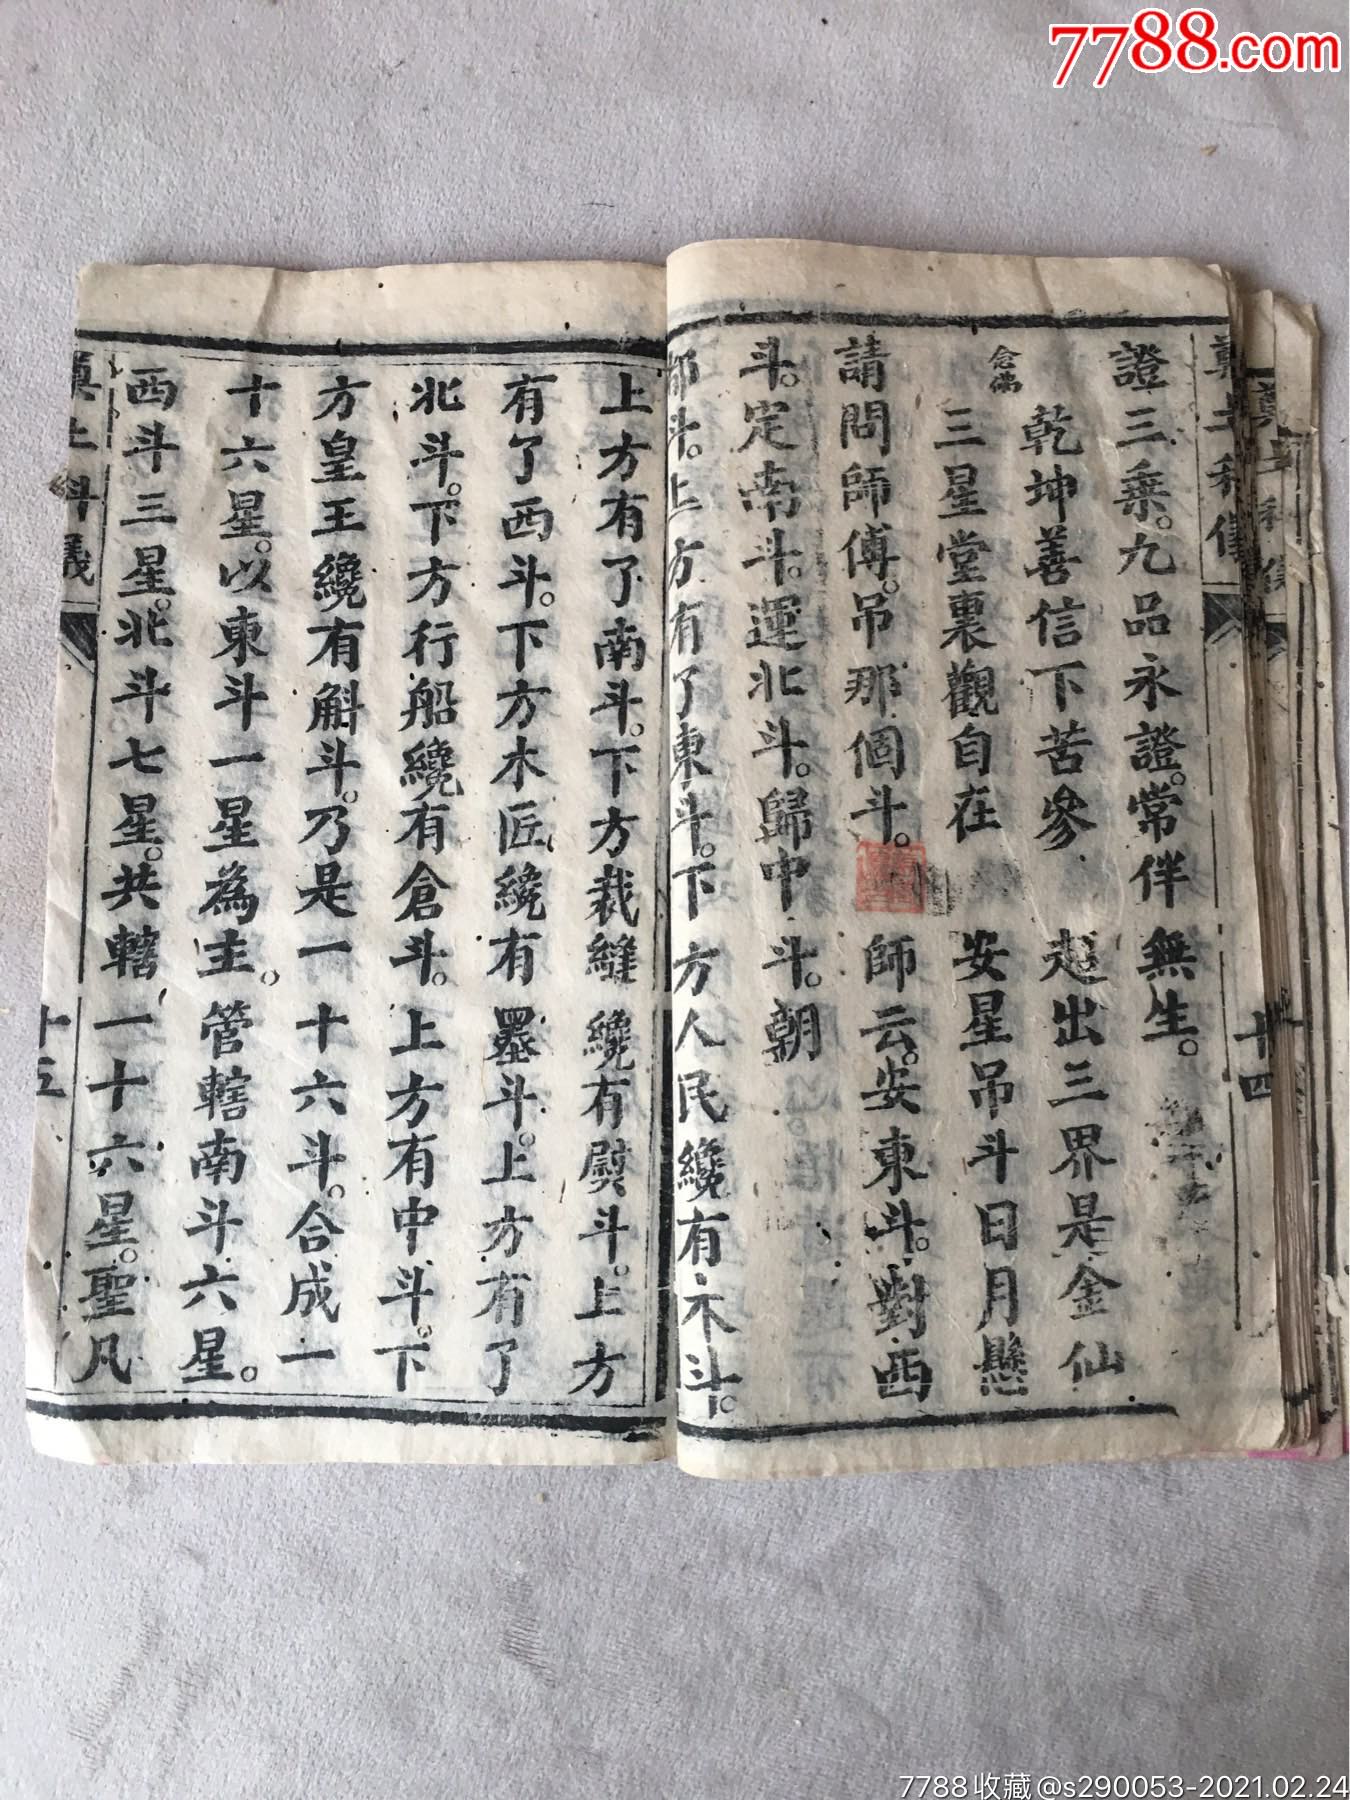 7788.com
證三乗。九品永證。常伴無生。
乾坤善信下苦參 超出三界是金仙
念佛
三星堂裏觀自在 安星吊斗日月懸
請問師傅。吊那個斗。 師云。安東斗。對西
斗。定南斗。運北斗。歸中斗。朝
都斗。上方有了東斗。下方人民纔有木斗。
上方有了南斗。下方裁縫纔有熨斗。上方
有了西斗。下方木匠纔有墨斗。上方有了
北斗。下方行船纔有倉斗。上方有中斗。下
方皇王纔有斛斗。乃是一十六斗。合成一
十六星。以東斗一星為主。管轄南斗六星。
西斗三星。北斗七星。共轄一十六星。聖凡
十四
十五
7788收藏@s290053-2021.02.24